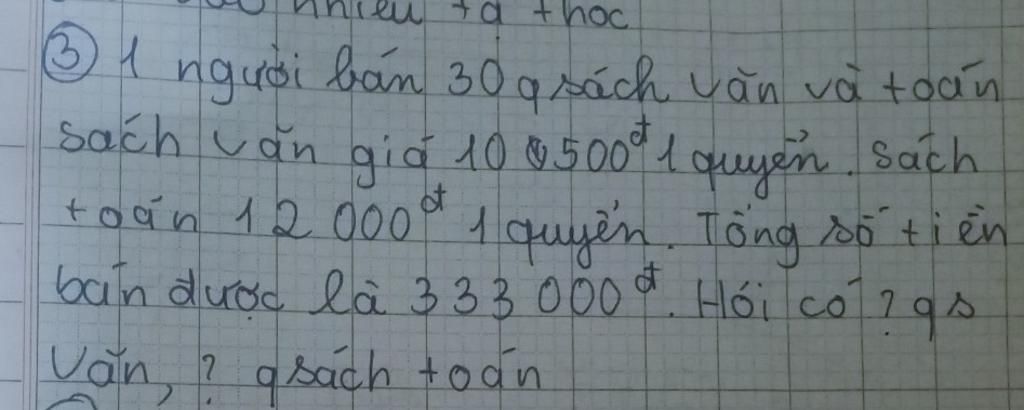 nhiêu tạ thóc
③ 1 người bán 30 q sách văn và toán
sách văn giá 10 500đ 1 quyển. Sách
toán 12 000đ 1 quyển. Tổng số tiền
bán được là 333 000đ. Hỏi có ? q s
Văn, ? q sách toán